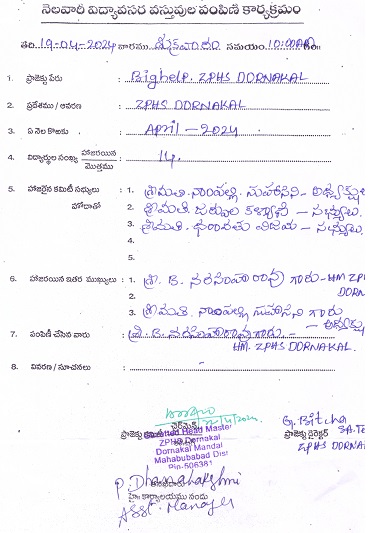 నెలవారీ విద్యావసర వస్తువుల పంపిణీ కార్యక్రమం
తేది 19-04-2024 వారము శుక్రవారం సమయం 10:00
1. ప్రాజెక్టు పేరు : Bighelp. ZPHS DORNAKAL
2. ప్రదేశము / ఆవరణ : ZPHS DORNAKAL
3. ఏ నెల కొఱకు : APRIL - 2024
4. విద్యార్థుల సంఖ్య హాజరయిన / మొత్తము : 14
5. హాజరైన కమిటీ సభ్యులు : 1. శ్రీమతి. నాంపల్లి. సుహాసిని - అధ్యక్షు
హోదాతో 2. శ్రీమతి. కళ్యాణి - సభ్యులు.
3. శ్రీమతి. విజయ - సభ్యులు.
4.
5.
6. హాజరయిన ఇతర ముఖ్యులు : 1. శ్రీ. B. నరసింహారావు గారు - HM ZP
2. DORN
3. శ్రీమతి నాంపల్లి సుహాసిని గారు
- అధ్యక్షు
7. పంపిణీ చేసిన వారు : శ్రీ. B. నరసింహారావు గారు -
HM. ZPHS DORNAKAL.
8. వివరణ / సూచనలు : -
ప్రాజెక్టు చైర్మెన్
Head Master
ZPHS Dornakal
Dornakal Mandal
Mahabubabad Dist
Pin-506381
G. Bitcha
ప్రాజెక్టు డైరెక్టర్ SA.Te
ZPHS DORNA
P. Dhanalakshmi
హై కార్యాలయము నందు
Asst. Manager